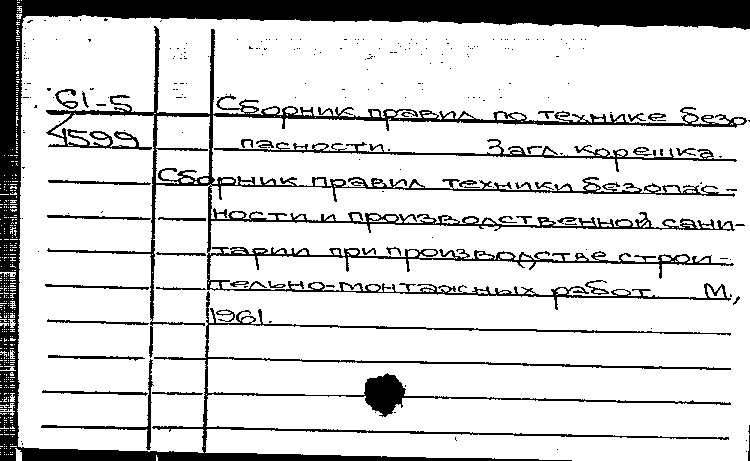 61-5 Сборник правил по технике безо-
4599 пасности. Загл. корешка.
Сборник правил техники безопас-
ности и производственной сани-
тарии при производстве строи-
тельно-монтажных работ. М.,
1961.